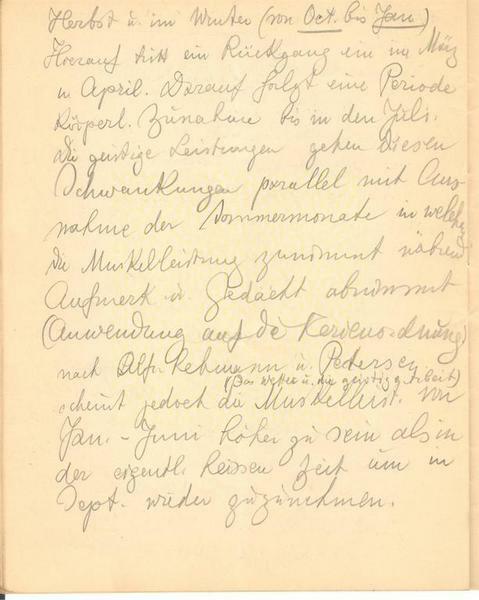 Herbst u. im Winter (von Oct. bis Jan.)
Hierauf tritt ein Rückgang ein im März
u April. Darauf folgt eine Periode
körperl. Zunahme bis in den Juli.
Die geistige Leistungen gehen diesen
Schwankungen parallel mit Aus-
nahme der Sommermonate in welchen
die Muskelleistung zunimmt während
Aufmerk u. Gedächt abnimmt
(Anwendung auf die Ferienordnung)
nach Alfr. Lehmann u. Petersen
(Das Wetter u. die geistige Arbeit)
scheint jedoch die Muskelleist. von
Jan. - Juni höher zu sein als in
der eigentl. heissen Zeit um in
Sept. wieder zuzunehmen.